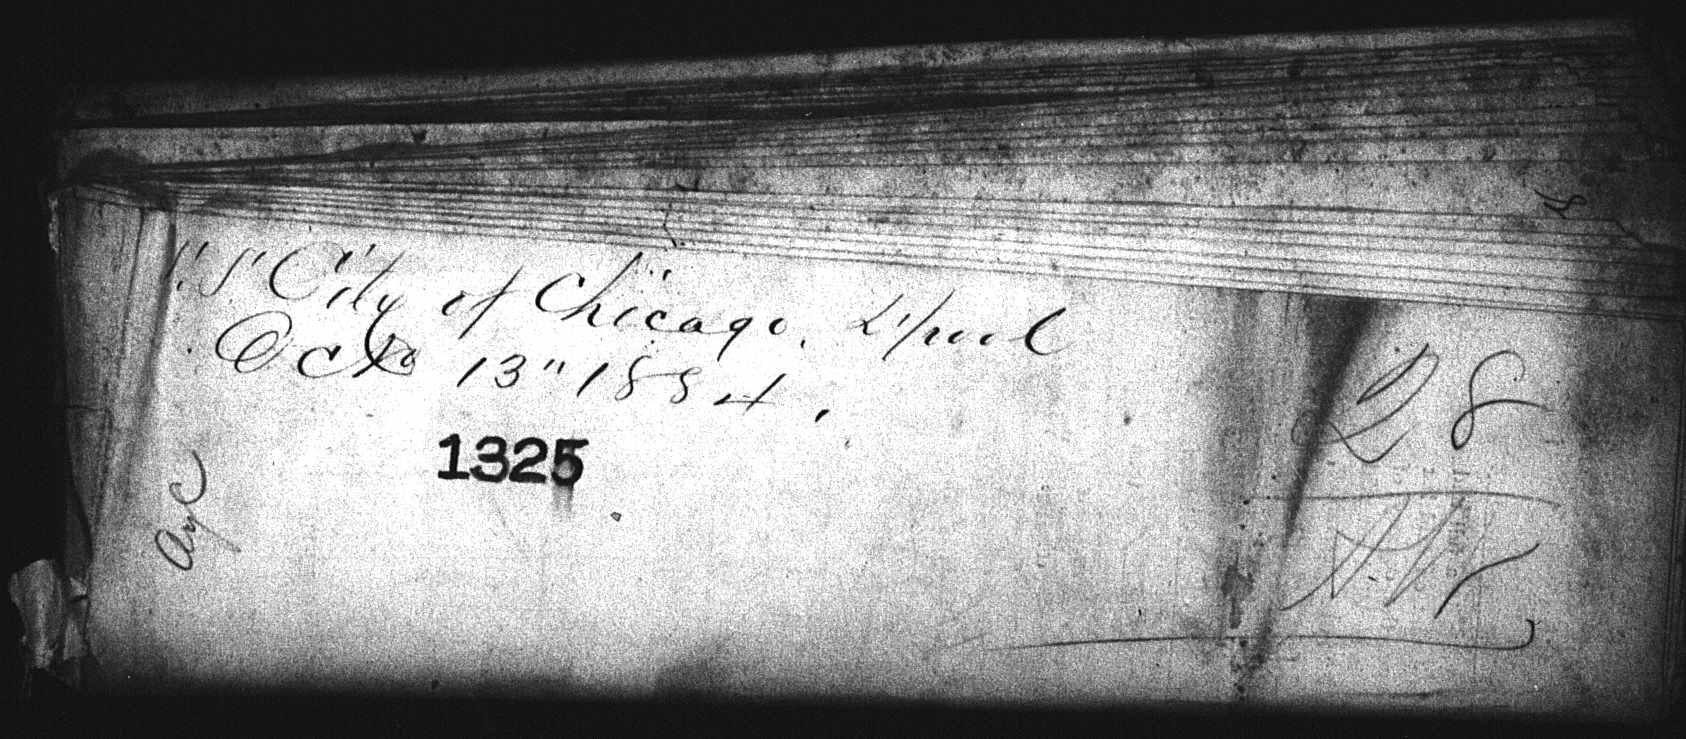 "S" City of Chicago. L'pool
Octo 13" 1884.
1325
28